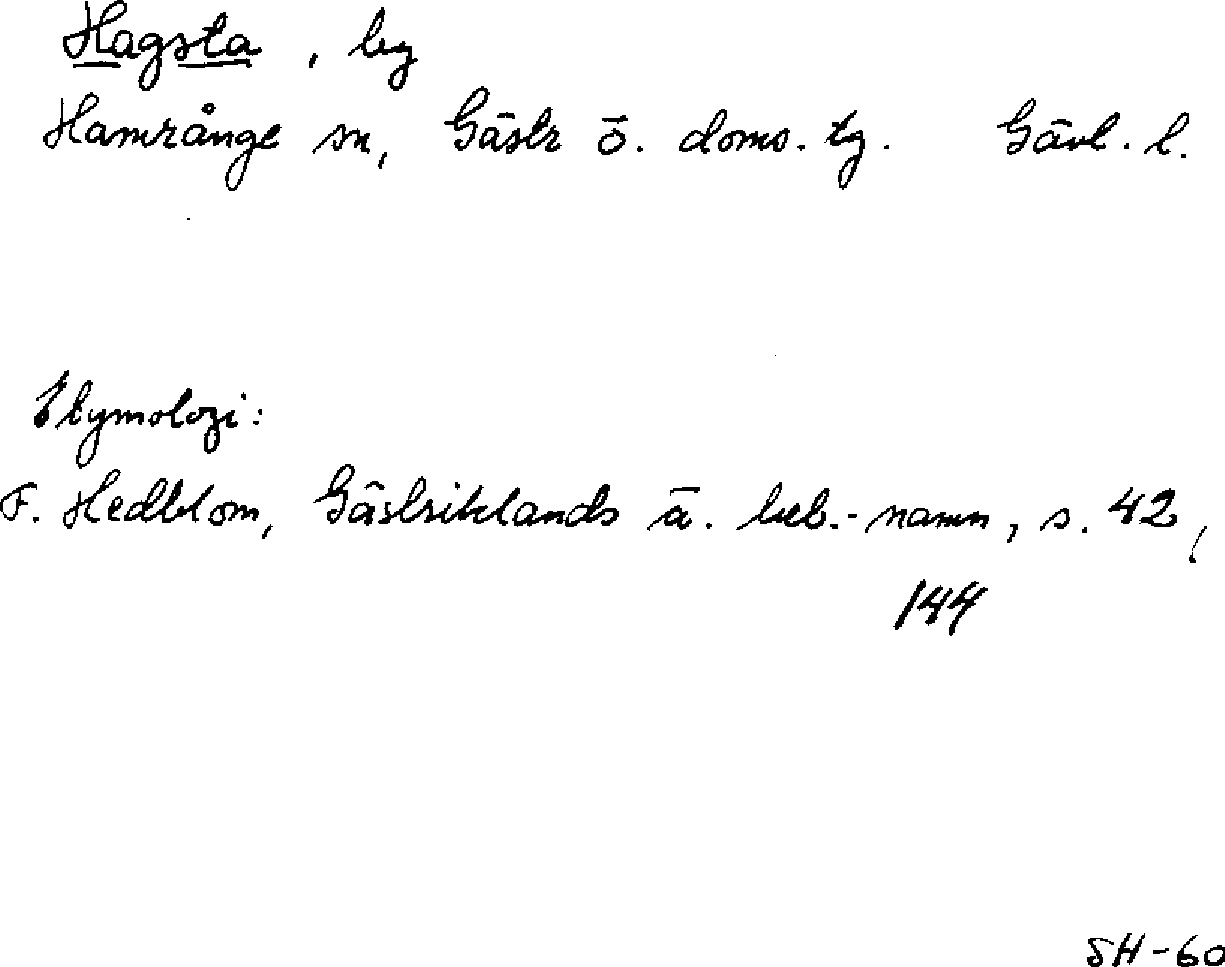 Hagsta, by
Hamrånge sn, Gästr ö. doms. tg. Gävl. l.
Etymologi:
F. Hedblom, Gästriklands ä. beb.-namn, s. 42,
144
SH-60